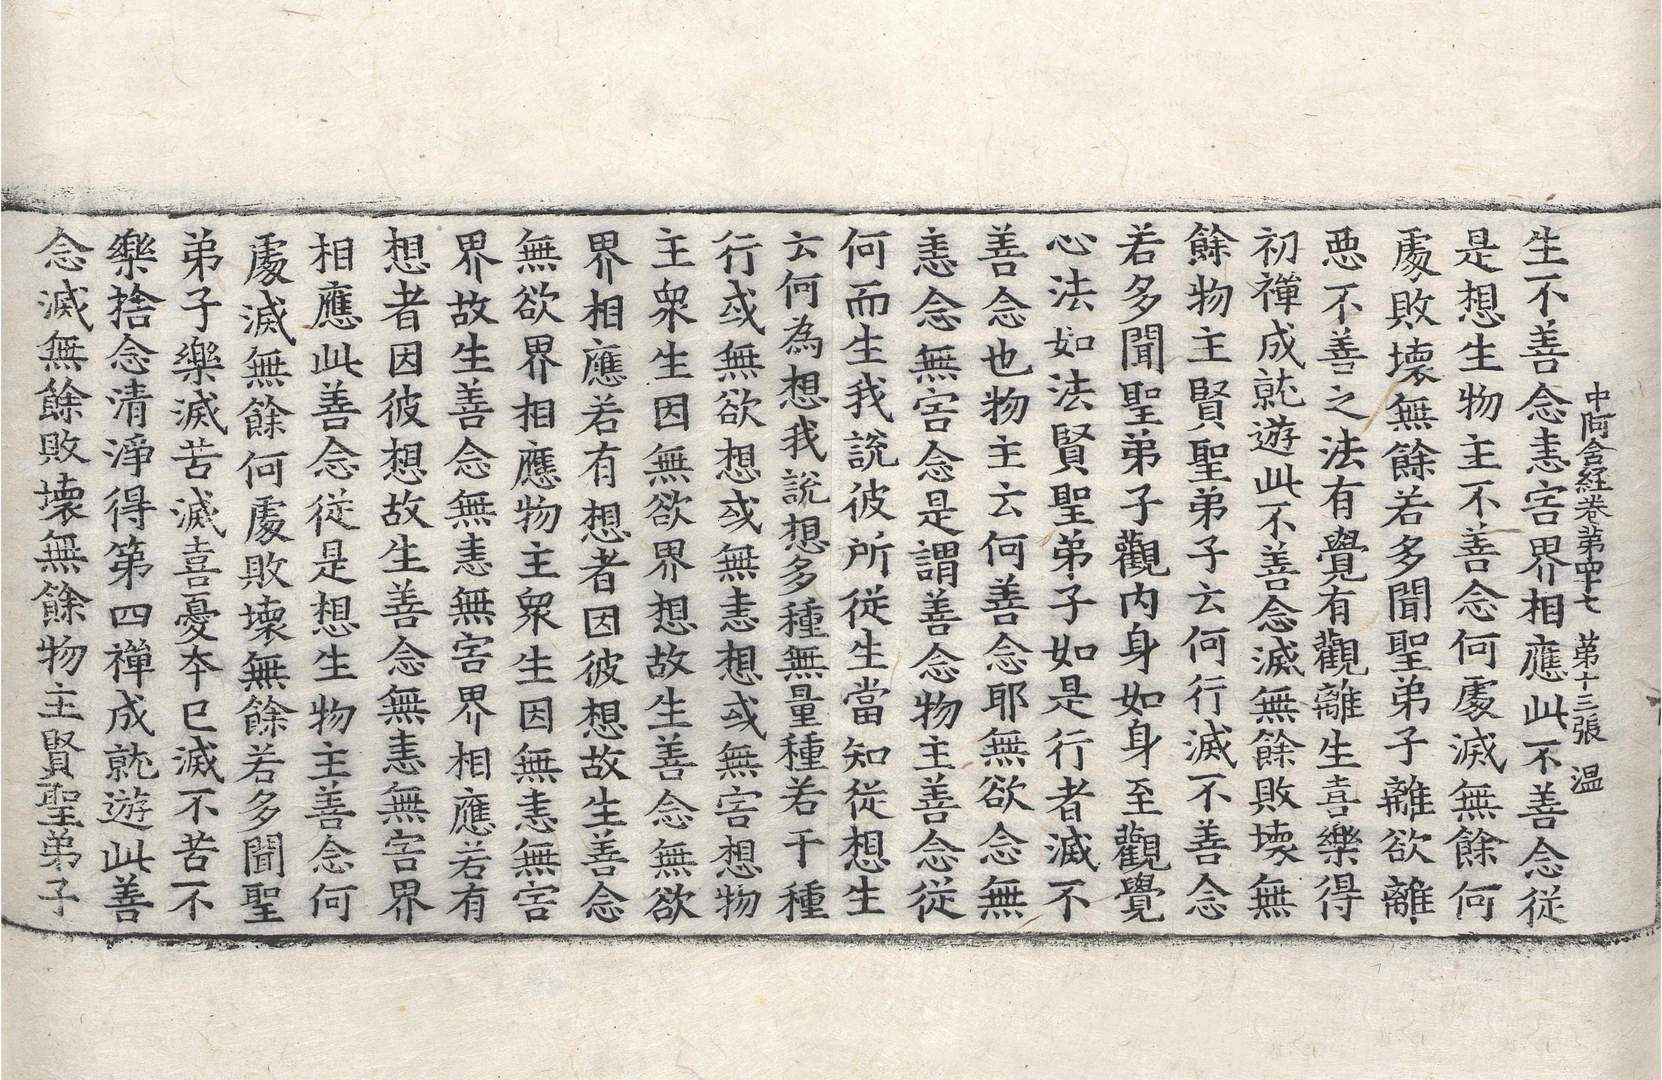 中阿含經卷第四十七 第十三張 温
生不善念恚害界相應此不善念從
是想生物主不善念何處滅無餘何
處敗壞無餘若多聞聖弟子離欲離
惡不善之法有覺有觀離生喜樂得
初禪成就遊此不善念滅無餘敗壞無
餘物主賢聖弟子云何行滅不善念
若多聞聖弟子觀內身如身至觀覺
心法如法賢聖弟子如是行者滅不
善念也物主云何善念耶無欲念無
恚念無害念是謂善念物主善念從
何而生我說彼所從生當知從想生
云何為想我說想多種無量種若干種
行或無欲想或無恚想或無害想物
主衆生因無欲界想故生善念無欲
界相應若有想者因彼想故生善念
無欲界相應物主衆生因無恚無害
界故生善念無恚無害界相應若有
想者因彼想故生善念無恚無害界
相應此善念從是想生物主善念何
處滅無餘何處敗壞無餘若多聞聖
弟子樂滅苦滅喜憂本已滅不苦不
樂捨念清淨得第四禪成就遊此善
念滅無餘敗壞無餘物主賢聖弟子